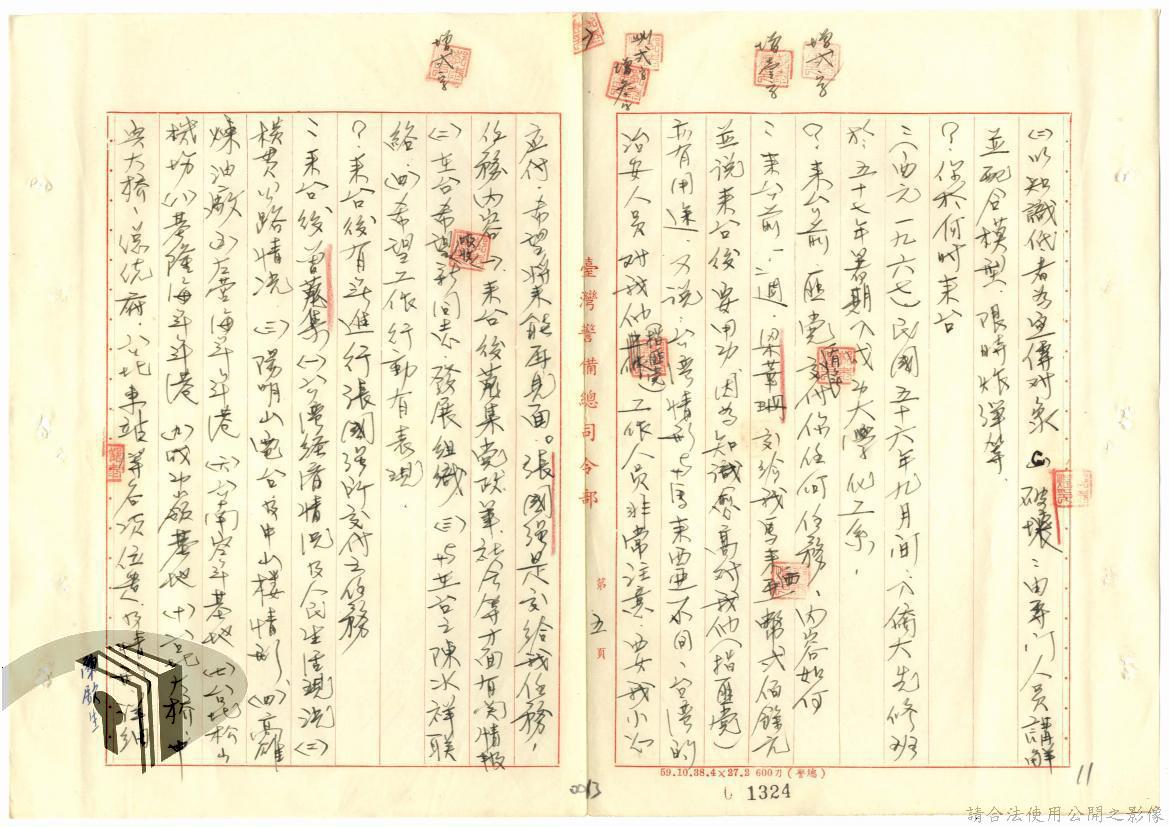 增弍字
增壹字
刪弍字
增叁字
增弍字
(三)以知識份者為宣傳對象 (四)破壞:由專门人員講解
並配合模型、限時炸彈等.
?你於何時來台
:西元一九六七(民國五十六)年九月間,入僑大先修班
於五十七年暑期入成功大學化工系.
?來台前匪党有無交付你任何任務,內容如何
:來台前一週.梁漢珊交給我馬來西亞幣弍佰餘元
並說來台後要用功因為知識愈高對我他(指匪党)
亦有用途.又說:台灣情形与馬來西亞不同,台灣的
治安人員對我他(指匪党)工作人員非常注意.要我小心
應付.希望將來能再見面。張國強是交給我任務,
任務內容(一)來台後蒐集党政軍社会等方面有関情報
(二)在台希望吸收新同志.發展組織(三)与在台之陳水祥联
絡.(四)希望工作行動有表現
?來台後有無進行張國強所交付之任務
:來台後曾蒐集(一)台灣經濟情況及人民生活現況(二)
橫貫公路情況 (三)陽明山電台及中山樓情形 (四)高雄
煉油廠 (五)左營海軍軍港 (六)台南空軍基地 (七)台北松山
機場 (八)基隆海軍軍港 (九)成功嶺基地 (十)台北大橋、中
興大橋、總統府.台北車站等各項位置及
陳欽生
臺灣警備總司令部
第五頁
59.10.38.4×27.2 600刀(警總)
1324
11
0013
請合法使用公開之影像